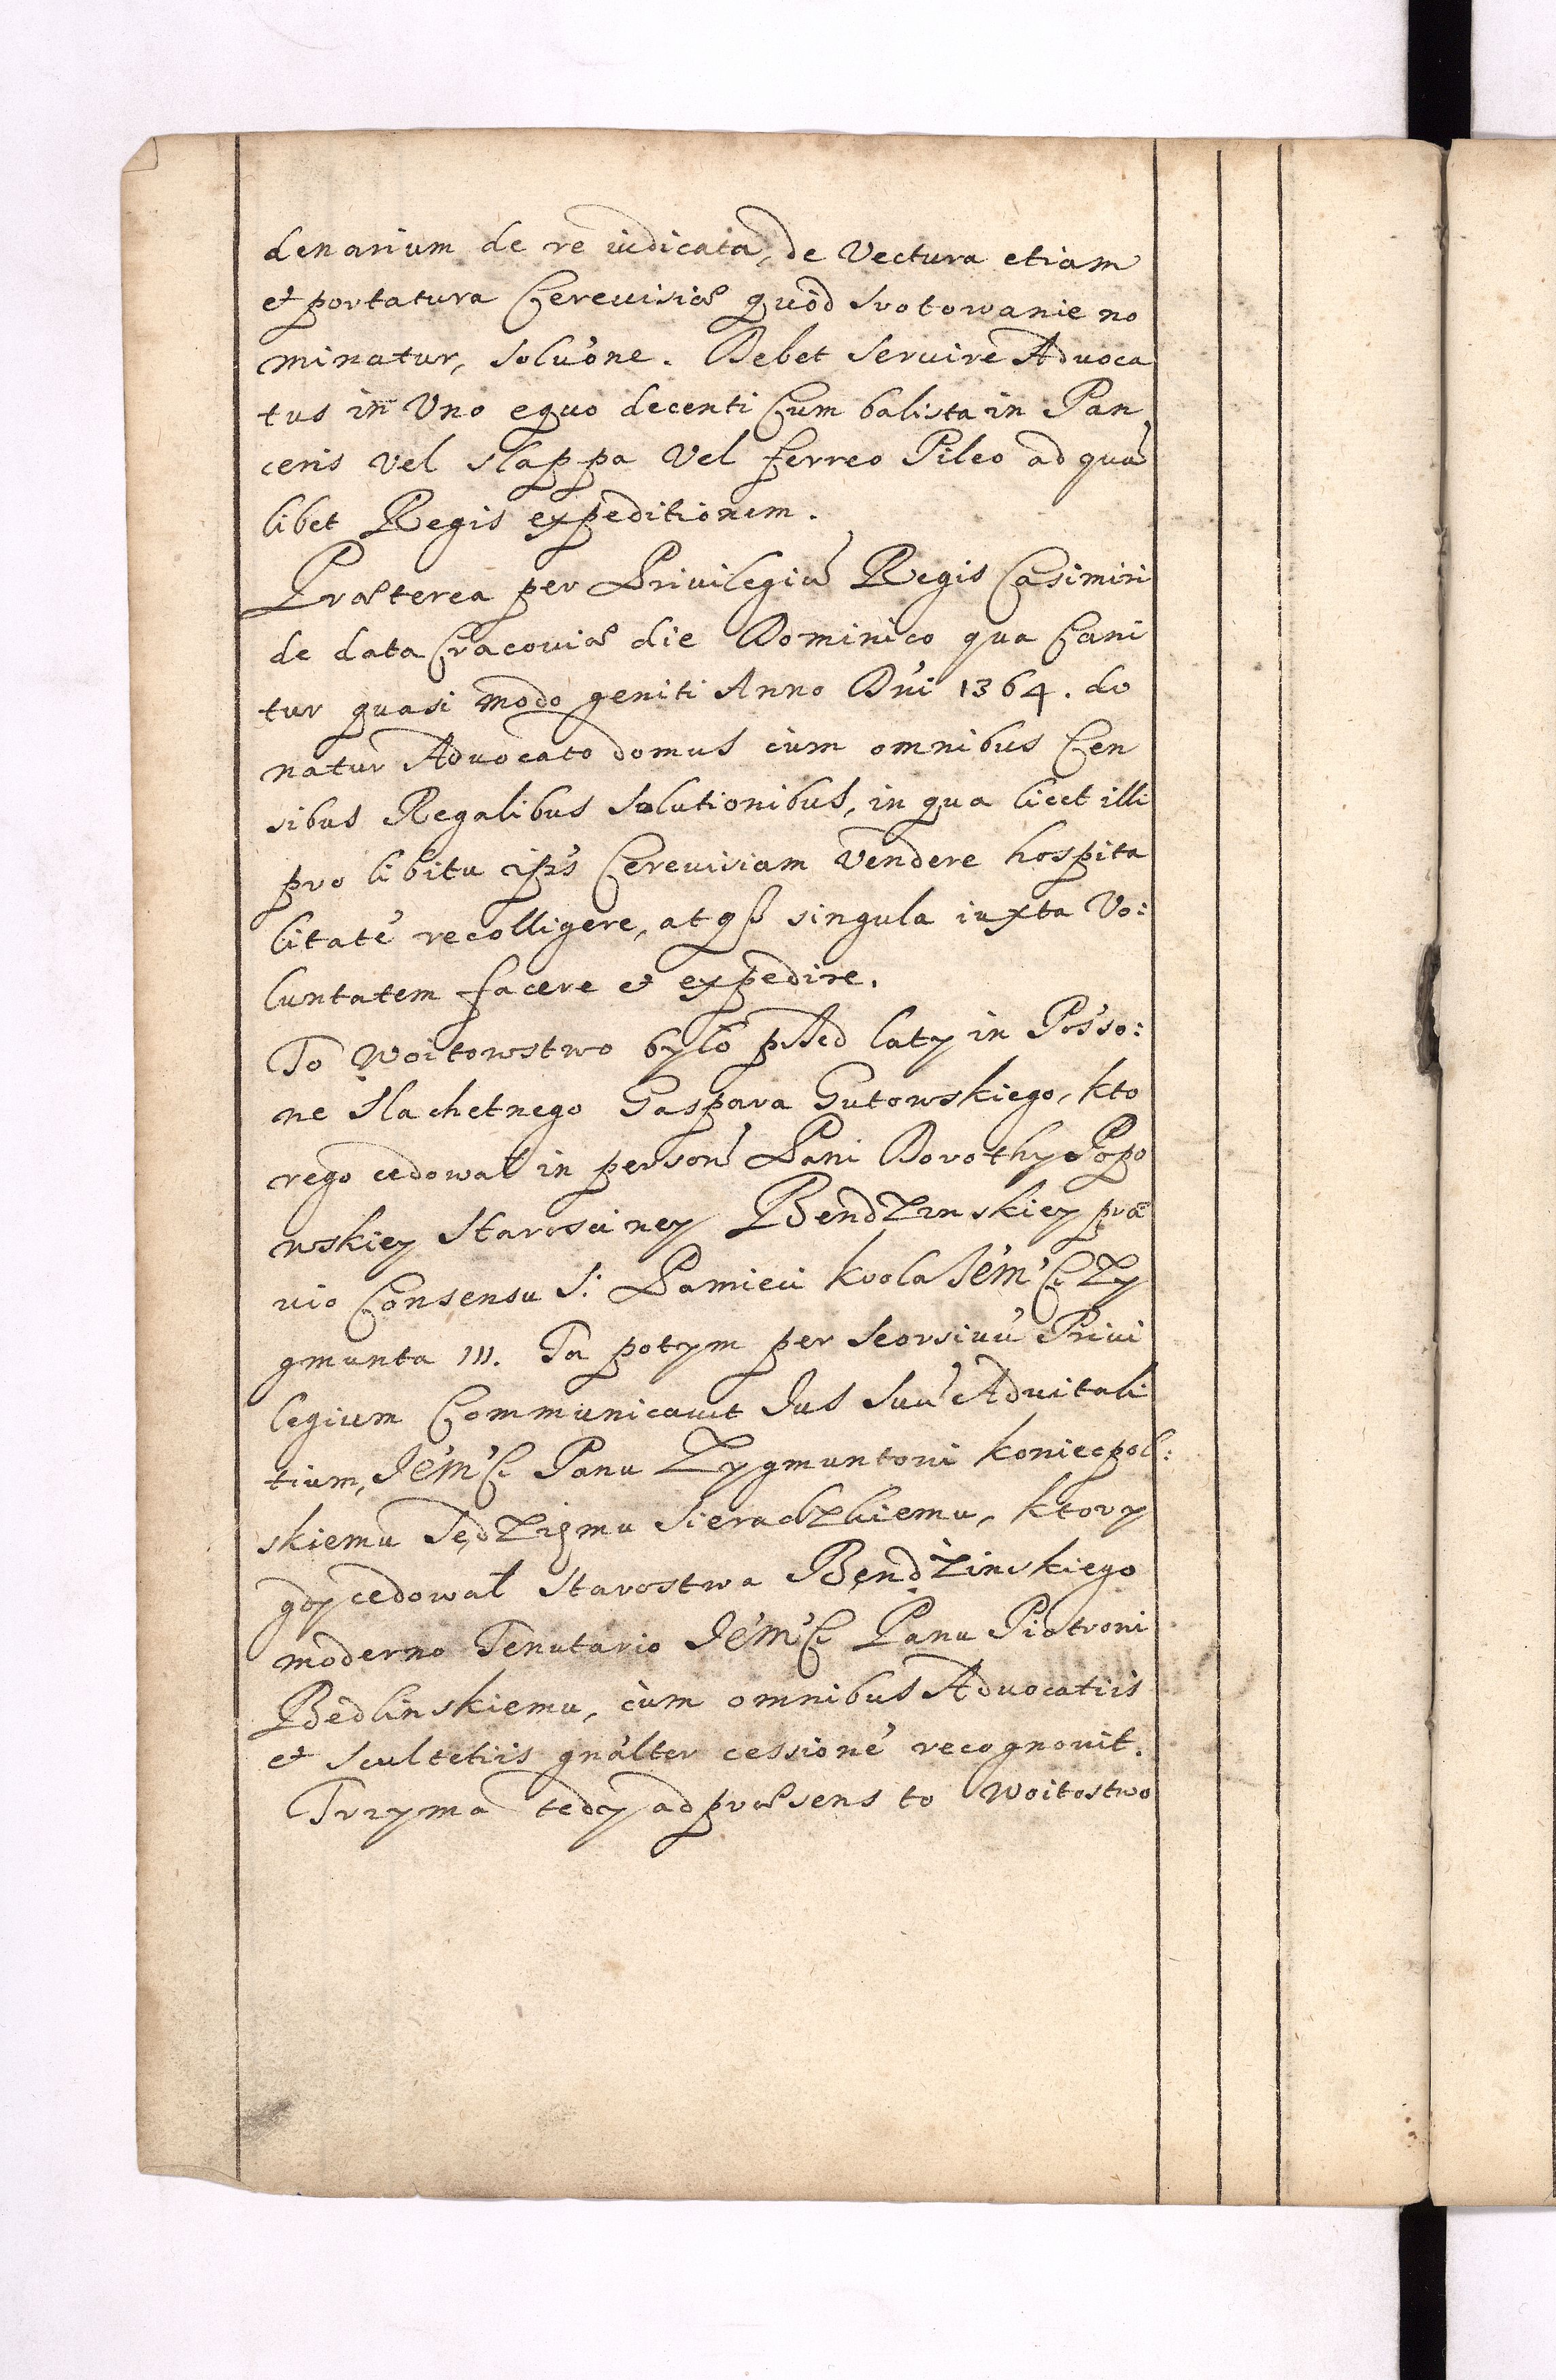 denarium de re iudicata, de Vectura etiam
et portatura Cerevisiæ quod srotowanie no
minatur, solu'one. Debet Servire Advoca
tus in Uno equo decenti Cum balista in Pan
ceris vel slappa Vel ferreo Pileo ad quã
libet Regis expeditionem.
Præterea per Privilegiũ Regis Casimiri
de data Cracoviæ die Dominico qua Cani
tur quasi modo geniti Anno Dñi 1364. do
natur Advocato domus cum omnibus Cen
sibus Regalibus Solutionibus, in qua licet illi
pro libitu ips's Cerevisiam Vendere hospita
litatẽ recolligere, atqȝ singula iuxta Vo:
luntatem facere et expedire.
To Woitowstwo było przed laty in Posso:
ne Slachetnego Gaspara Gutowskiego, kto
rego cedował in personã Pani Dorothy Popo
wskiey Starosciney Bendzinskiey præ
vio Consensu S: Pamieci krola Je'm'Ci Zy
gmunta III. Ta potym per seorsivũ Privi
legium Communicavit Jus Suũ Advitali
tium, Je'm'Ci Panu Zygmuntowi koniecpol:
skiemu Sędziemu Sieradzkiemu, ktory
gdy cedował Starostwa Bendzinskiego
moderno Tenutario Je'm'Ci Panu Piotrowi
Bedlinskiemu, cum omnibus Advocatiis
et Scultetiis gnãlter cessionẽ recognovit.
Trzyma tedy ad præsens to Woitostwo